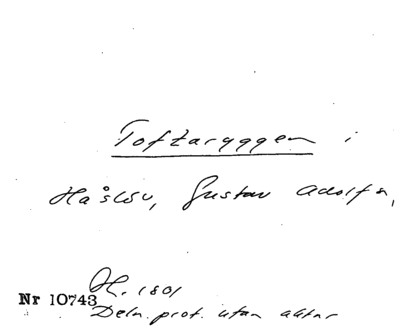 Toftaryggen i
Håslöv, Gustav Adolfs,
H. 1801
Nr 10743
Deln. prot. utan aktnr